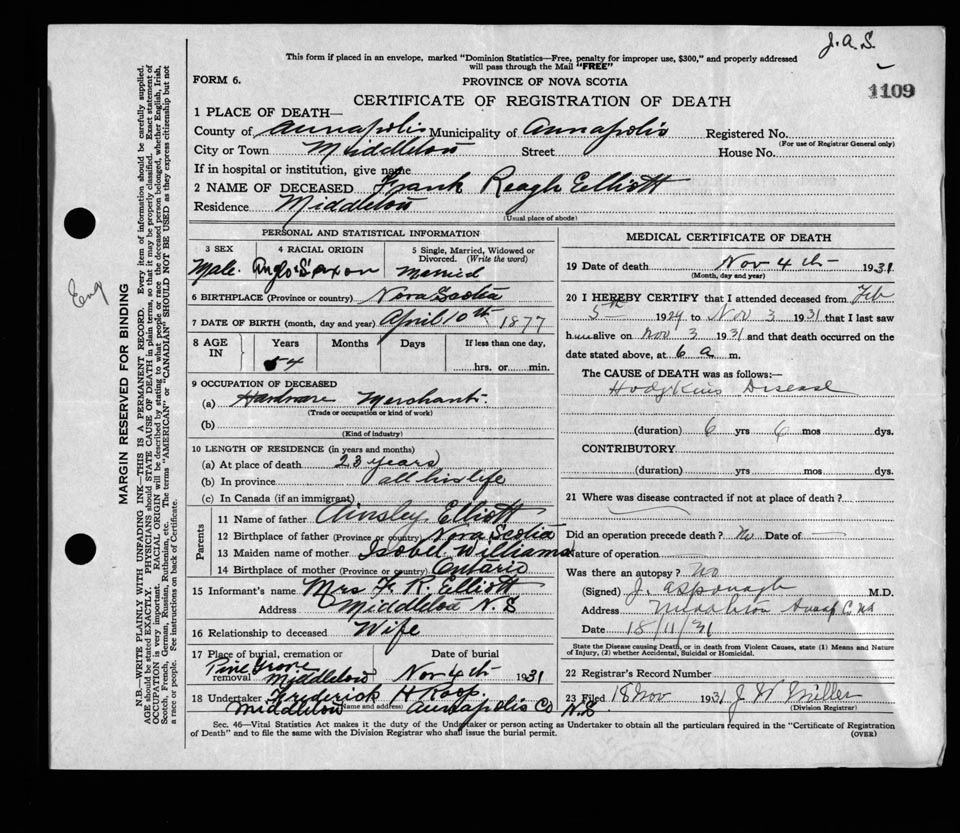 J.A.S.
This form if placed in an envelope, marked "Dominion Statistics—Free, penalty for improper use, $300," and properly addressed
will pass through the Mail "FREE"
FORM 6.
PROVINCE OF NOVA SCOTIA
1109
CERTIFICATE OF REGISTRATION OF DEATH
1 PLACE OF DEATH—
County of Annapolis Municipality of Annapolis Registered No.
(For use of Registrar General only)
City or Town Middleton Street House No.
If in hospital or institution, give name
2 NAME OF DECEASED Frank Reagh Elliott
Residence Middleton
(Usual place of abode)
PERSONAL AND STATISTICAL INFORMATION
3 SEX 4 RACIAL ORIGIN 5 Single, Married, Widowed or Divorced. (Write the word)
Male. Anglo Saxon Married
6 BIRTHPLACE (Province or country) Nova Scotia
7 DATE OF BIRTH (month, day and year) April 10th 1877
8 AGE IN Years Months Days If less than one day,
54 hrs. or min.
9 OCCUPATION OF DECEASED
(a) Hardware Merchant.
(Trade or occupation or kind of work)
(b)
(Kind of industry)
10 LENGTH OF RESIDENCE (in years and months)
(a) At place of death 23 years
(b) In province all his life
(c) In Canada (if an immigrant)
Parents
11 Name of father Ainsley Elliott
12 Birthplace of father (Province or country) Nova Scotia
13 Maiden name of mother Isobel Williams
14 Birthplace of mother (Province or country) Ontario
15 Informant's name Mrs F. R. Elliott
Address Middleton N.S
16 Relationship to deceased Wife
17 Place of burial, cremation or removal Date of burial
Pine Grove Middleton Nov 4th 1931
18 Undertaker Frederick H Roop.
(Name and address) Middleton Annapolis Co N.S
MEDICAL CERTIFICATE OF DEATH
19 Date of death Nov 4th 1931
(Month, day and year)
20 I HEREBY CERTIFY that I attended deceased from Feb
5th 1929 to Nov 3 1931 that I last saw
him alive on Nov 3 1931 and that death occurred on the
date stated above, at 6 a m.
The CAUSE of DEATH was as follows:—
Hodgkins Disease
(duration) 6 yrs 6 mos dys.
CONTRIBUTORY.
(duration) yrs mos dys.
21 Where was disease contracted if not at place of death?
Did an operation precede death? No Date of —
Nature of operation —
Was there an autopsy? No
(Signed) J. A Sponagle M.D.
Address Middleton Annap Co NS
Date 18/11/31
State the Disease causing Death, or in death from Violent Causes, state (1) Means and
Nature of Injury, (2) whether Accidental, Suicidal or Homicidal.
22 Registrar's Record Number
23 Filed 18 Nov 1931 J W Miller
(Division Registrar)
Sec. 46—Vital Statistics Act makes it the duty of the Undertaker or person acting as Undertaker to obtain all the particulars required in the "Certificate of Registration
of Death" and to file the same with the Division Registrar who shall issue the burial permit. (OVER)
Eng
MARGIN RESERVED FOR BINDING
N.B.—WRITE PLAINLY WITH UNFADING INK—THIS IS A PERMANENT RECORD. Every item of information should be carefully supplied.
AGE should be stated EXACTLY. PHYSICIANS should STATE CAUSE OF DEATH in plain terms, so that it may be properly classified. Exact statement of
OCCUPATION is very important. RACIAL ORIGIN will be described by stating to what people or race the deceased person belonged, whether English, Irish,
Scotch, French, German, Russian, Ruthenian, etc. The terms "AMERICAN" or "CANADIAN" SHOULD NOT BE USED as they express citizenship but not
a race or people. See instructions on back of Certificate.